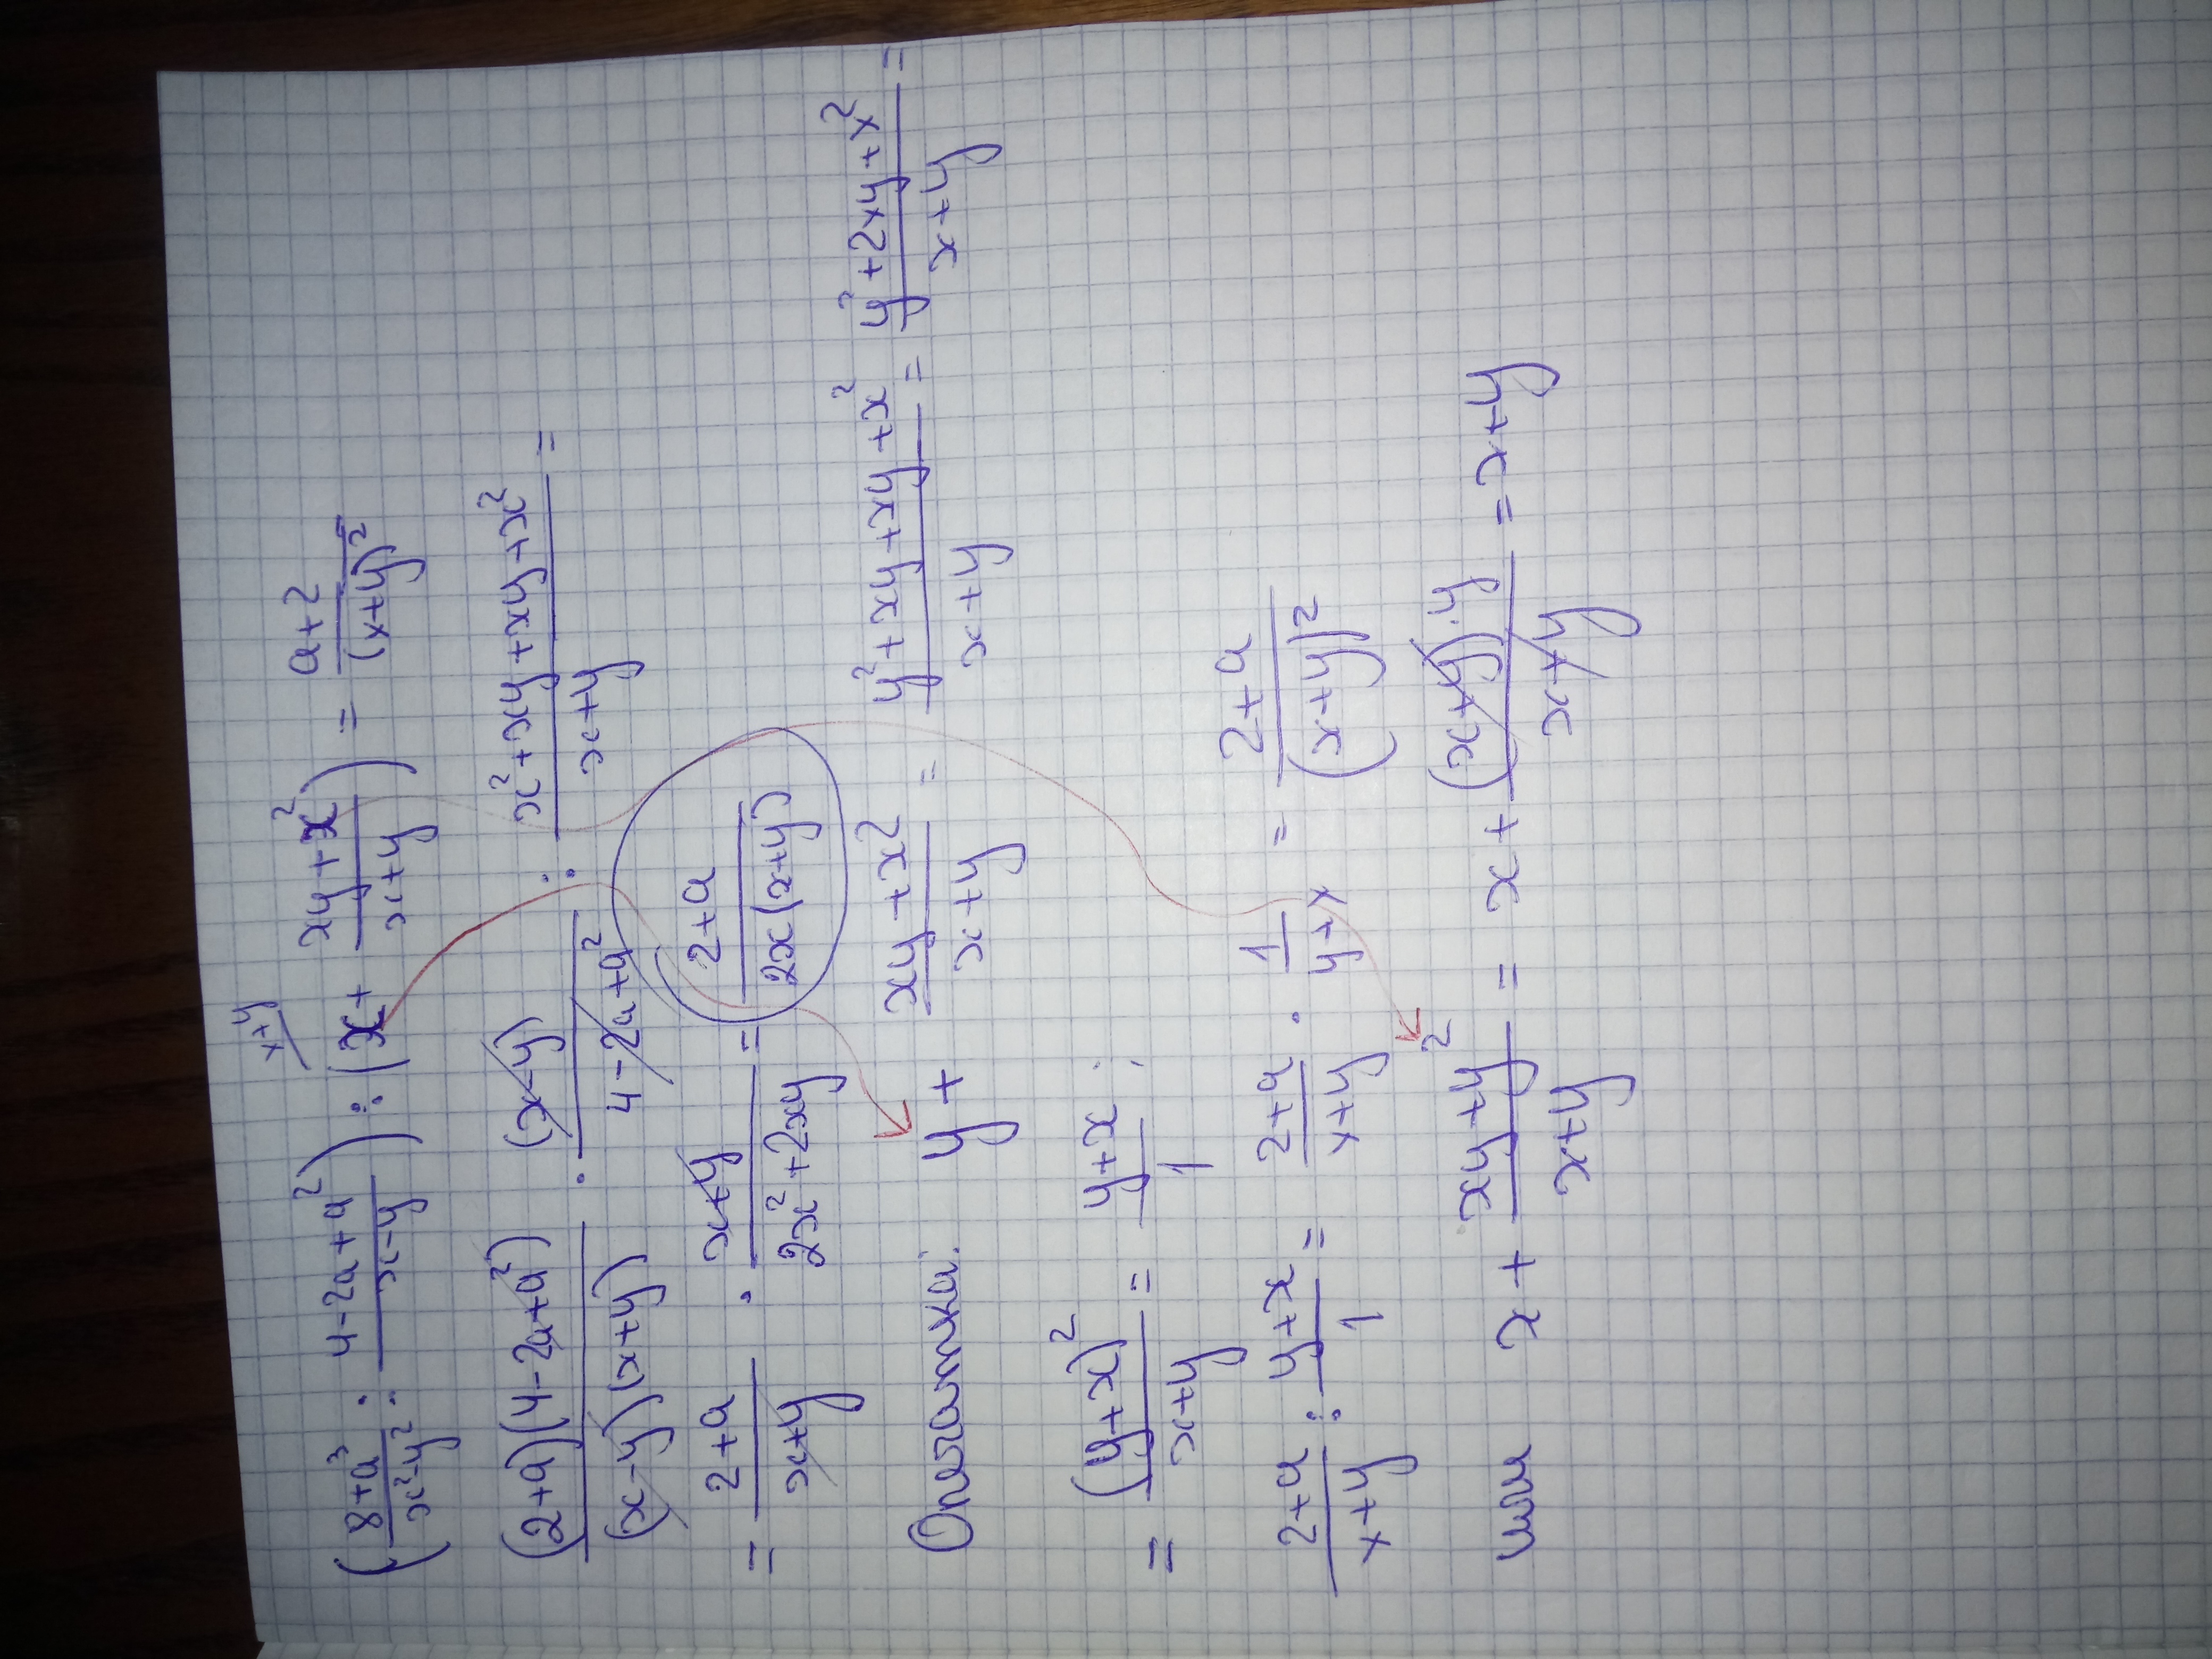 (8+a³)/(x²-y²) : (4-2a+a²)/(x-y)) : (x + (xy+x²)/(x+y)) = (a+2)/(x+y)²
x+y
((2+a)(4-2a+a²))/((x-y)(x+y)) · (x-y)/(4-2a+a²) : (x²+xy+xy+x²)/(x+y) =
= (2+a)/(x+y) · (x+y)/(2x²+2xy) = (2+a)/(2x(x+y))
Опечатка: y + (xy+x2)/(x+y) = (y²+xy+xy+x²)/(x+y) = (y²+2xy+x²)/(x+y) =
= (y+x)²/(x+y) = (y+x)/1 ;
(2+a)/(x+y) : (y+x)/1 = (2+a)/(x+y) · 1/(y+x) = (2+a)/(x+y)²
или x + (xy+y²)/(x+y) = x + ((x+y)·y)/(x+y) = x+y